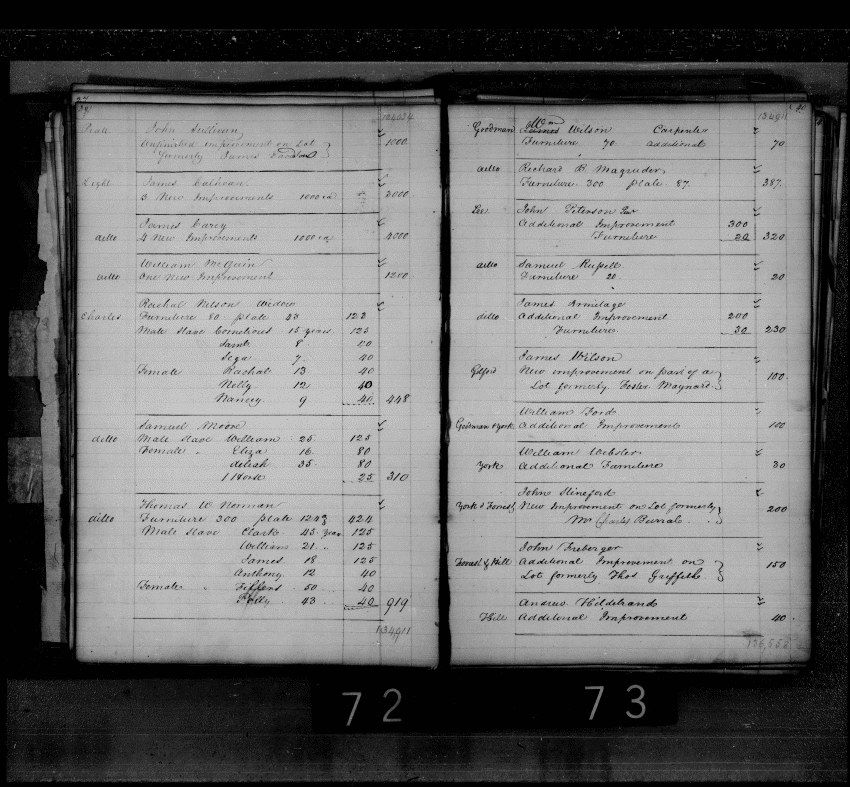 134034
Pratt John Sullivan
Unfinished improvement on Lot
formerly James Davidson 1000
Light James Calhoun
3 New Improvements 1000 ea 3000
James Carey
ditto 4 New Improvements 1000 ea 4000
William McQuin
ditto One New Improvement 1200
Rachal Nelson Widow
Charles Furniture 80 plate 43 123
Male Slave Cornelious 15 years 125
Samb 8 40
Sega 7 40
Female Rachal 13 40
Nelly 12 40
Nancey 9 40 448
Samuel Moore
ditto Male Slave William 25 125
Female " Eliza 16 80
deliah 35 80
1 Horse 25 310
Thomas W Norman
ditto Furniture 300 plate 124 424
Male Slave Clark 45 year 125
William 21 125
James 18 125
Anthony 12 40
Female 50 40
Polly 43 40 919
134911
134911
Goodman Wm Wilson Carpenter
Furniture 70 additional 70
ditto Richard B. Magruder
Furniture 300 plate 87 387
Lee John Peterson
Additional Improvement 300
Furniture 20 320
ditto Samuel Russell
Furniture 20 20
James Armitage
ditto Additional Improvement 200
Furniture 30 230
James Wilson
Gilford New improvement on part of a
Lot formerly Foster Maynard 100
William Ford
Goodman & York Additional Improvement 100
William Webster
York Additional Furniture 30
John Stineford
York & Forrest New Improvement on Lot formerly
Mr Charles Burrals 200
John Freberger
Forrest & Hill Additional Improvement on
Lot formerly Thos Griffith 150
Andrew Hildebrand
Hill Additional Improvement 40
72
73